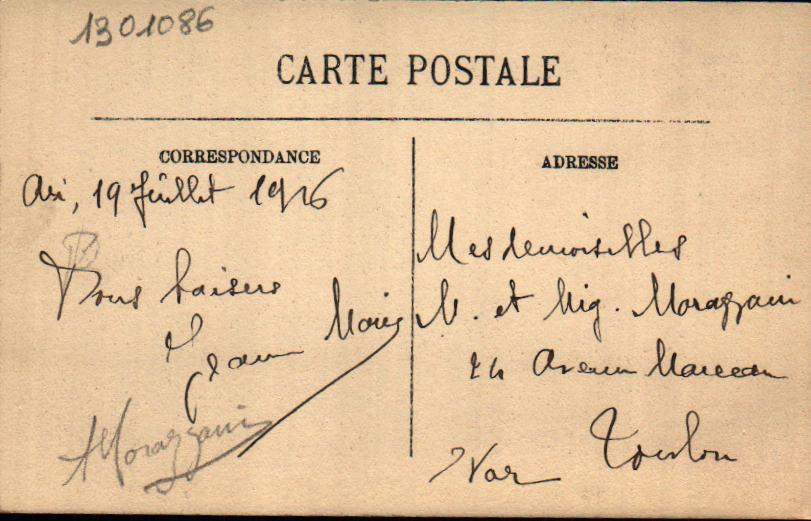 1301086
CARTE POSTALE
CORRESPONDANCE
19 Juillet 1916
Bons baisers
Jean Marie
AMorazzani
ADRESSE
Mesdemoiselles
M. et Mig. Morazzani
24 Avenue Marceau
Toulon
Var